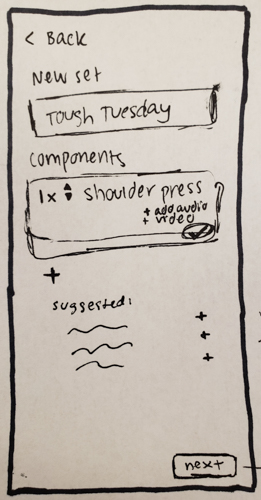 < Back
New set
Tough Tuesday
components
1x shoulder press
+ add audio
+ video
+
suggested:
+
+
+
next